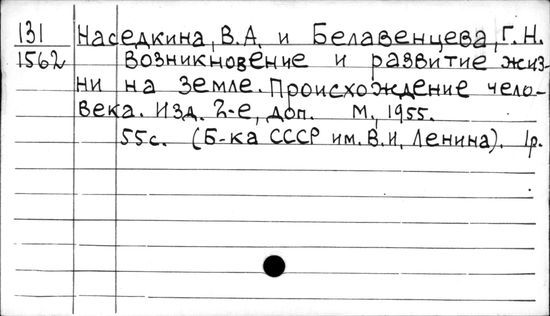 131 Наседкина, В.А. и Белавенцева, Г.Н.
1562 Возникновение и развитие жиз-
ни на Земле. Происхождение чело-
века. Изд. 2-е, доп. М., 1955.
55с. (Б-ка СССР им. В.И. Ленина). 1р.